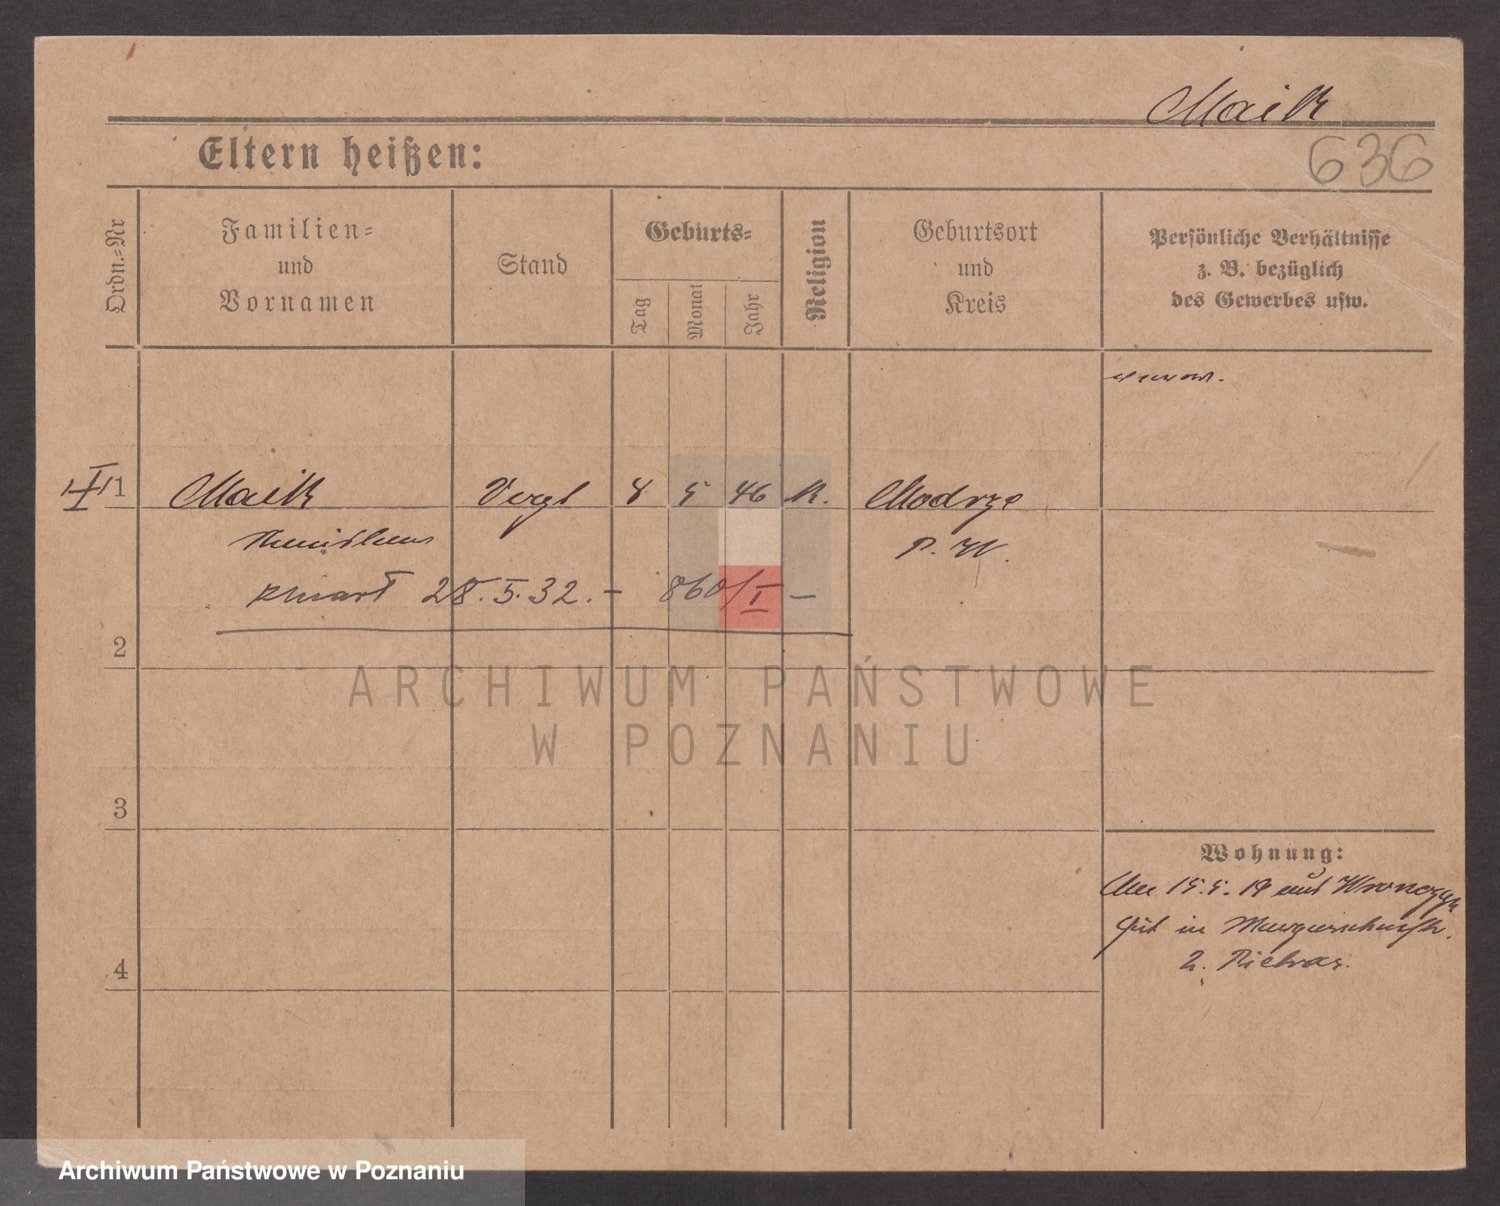 Maik
636
Eltern heißen:
Ordn.-Nr
Familien-
und
Vornamen
Stand
Geburts-
Tag
Monat
Jahr
Religion
Geburtsort
und
Kreis
Persönliche Verhältnisse
z. B. bezüglich
des Gewerbes usw.
1 Maik Vogt 8 5 46 K. Modrze
P. W.
zmarł 28.5.32. – 860/I –
2
ARCHIWUM PAŃSTWOWE
W POZNANIU
3
Wohnung:
15.5.19 aus Wronczyn
Gut in
2. Pietras.
4
Archiwum Państwowe w Poznaniu